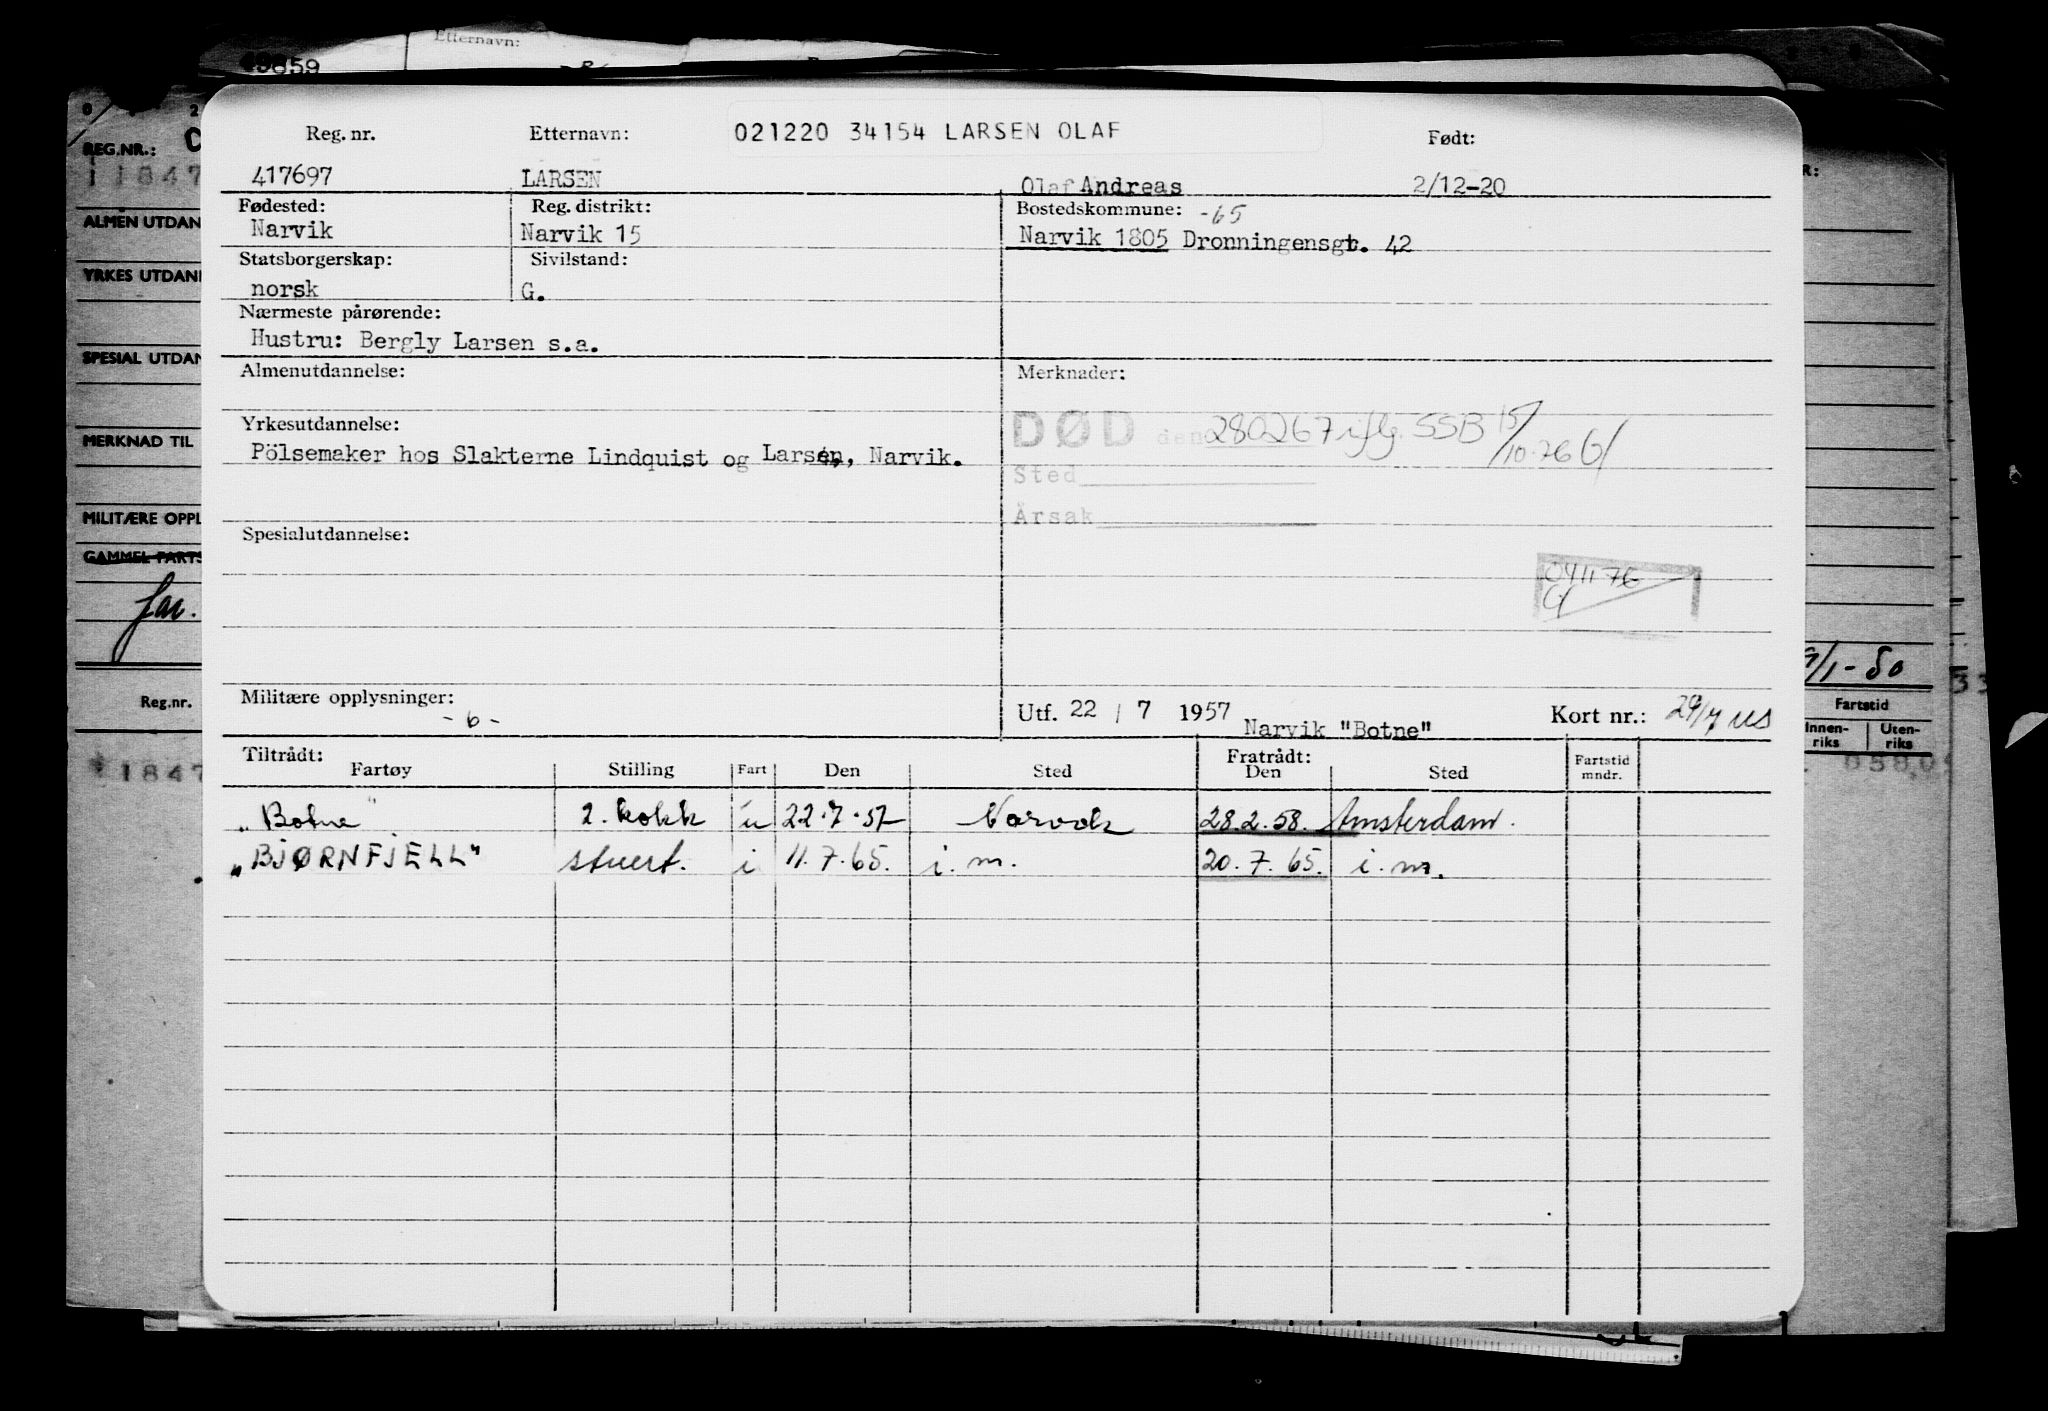 49859 Etternavn:
REG.NR.:
11847
ALMEN UTDAN
YRKES UTDAN
SPESIAL UTDAN
MERKNAD TIL
MILITÆRE OPPL
GAMMEL FARTS
Reg.nr.
1847
Reg. nr. Etternavn: 021220 34154 LARSEN OLAF Født:
417697 LARSEN Olaf Andreas 2/12-20
Fødested: Reg. distrikt: Bostedskommune: -65
Narvik Narvik 15 Narvik 1805 Dronningensgt. 42
Statsborgerskap: Sivilstand:
norsk G.
Nærmeste pårørende:
Hustru: Bergly Larsen s.a.
Almenutdannelse: Merknader:
Yrkesutdannelse: DØD den 280267 iflg. SSB 15/10-76
Pölsemaker hos Slakterne Lindquist og Larsen, Narvik.
Sted
Årsak
Spesialutdannelse:
041176
Militære opplysninger: Utf. 22 / 7 1957 Narvik "Botne" Kort nr.: 29/7 US
- 6 -
Tiltrådt: Fratrådt:
Fartøy Stilling Fart Den Sted Den Sted Fartstid mndr.
"Botne" 2. kokk u 22.7.57 Narvik 28.2.58. Amsterdam.
"BJØRNFJELL" stuert. i 11.7.65. i.m. 20.7.65. i.m.
R:
/1-50
33
Fartstid
Innen-riks Uten-riks